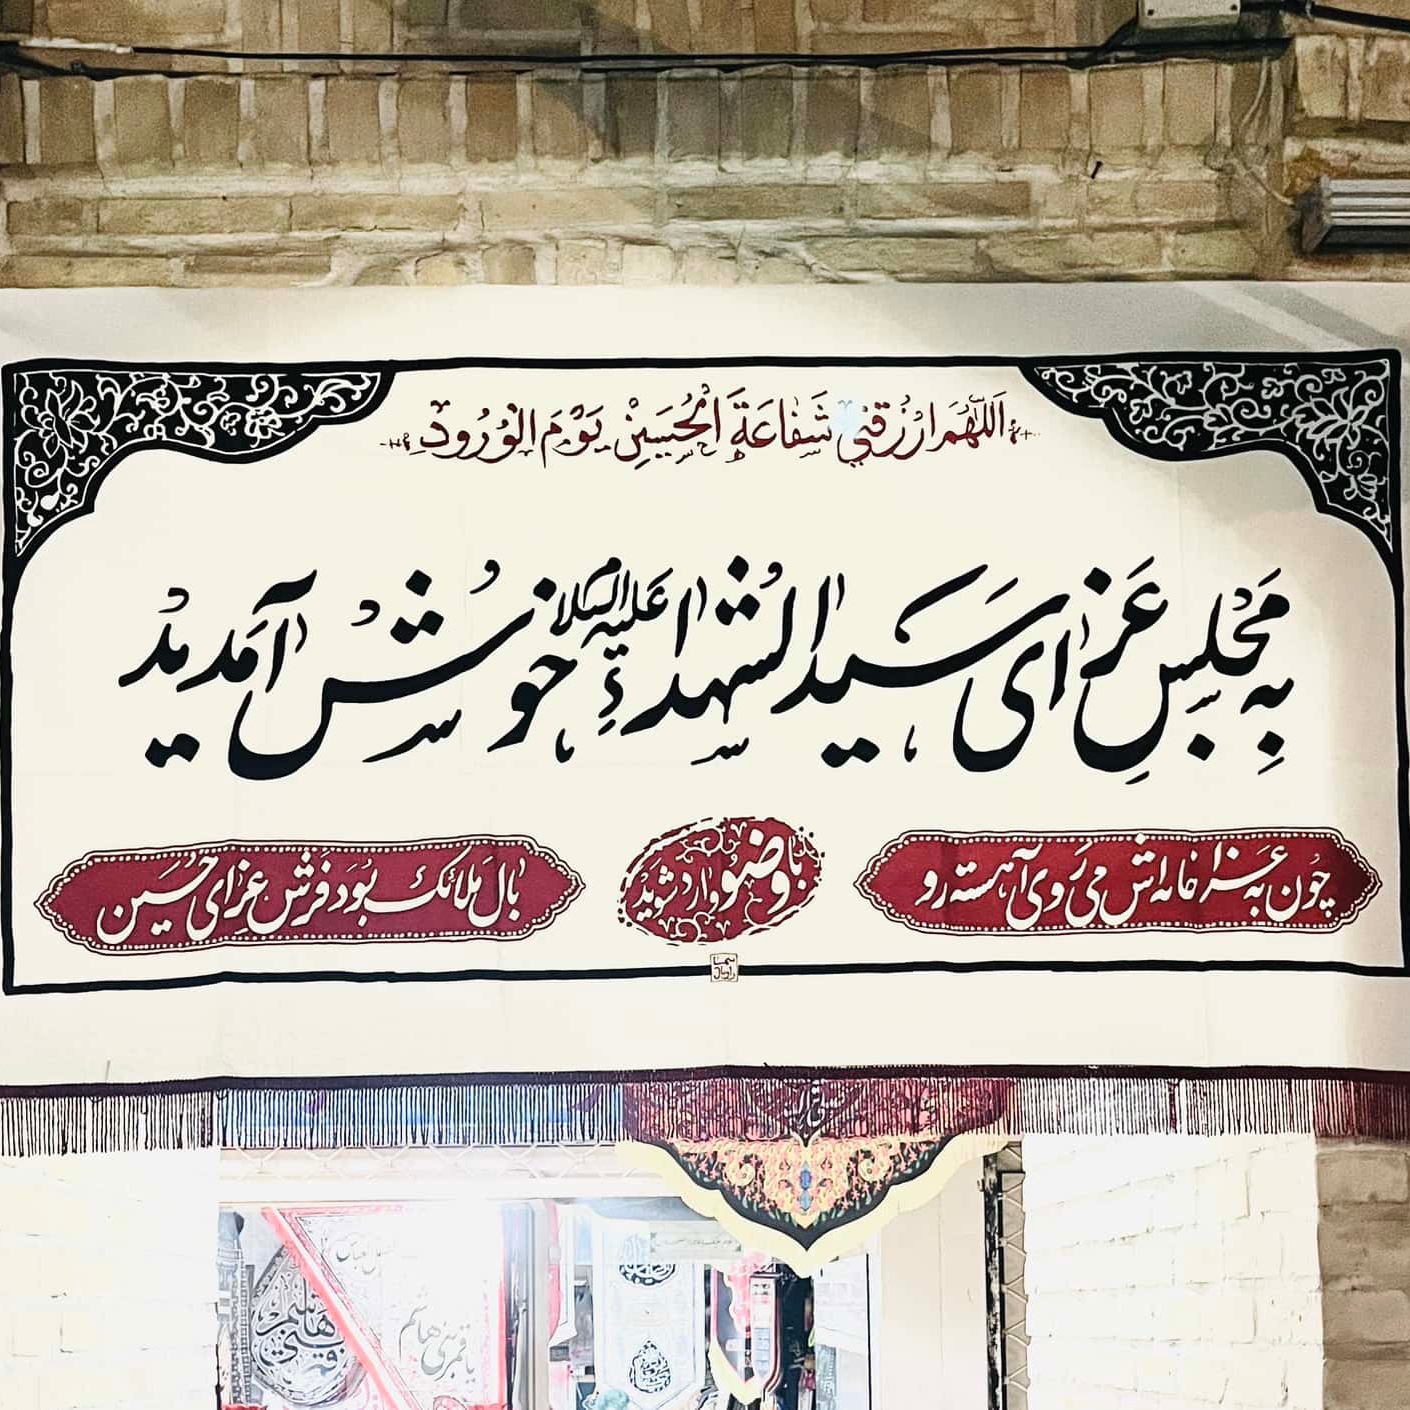 اَللّهُمَ ارْزُقْني شَفاعَةَ الْحُسَيْنْ يَوْمَ الْوُرُودِ
به مَجْلِسِ عَزای سَیدالشهداءِ علیه السلام خوش آمَدید
چون به عَزاخانه اش می رَوی آهسته رو
با وضو وارد شوید
بال مَلائک بُوَد فَرش عَزای حُسَین
یا قمر بنی هاشم